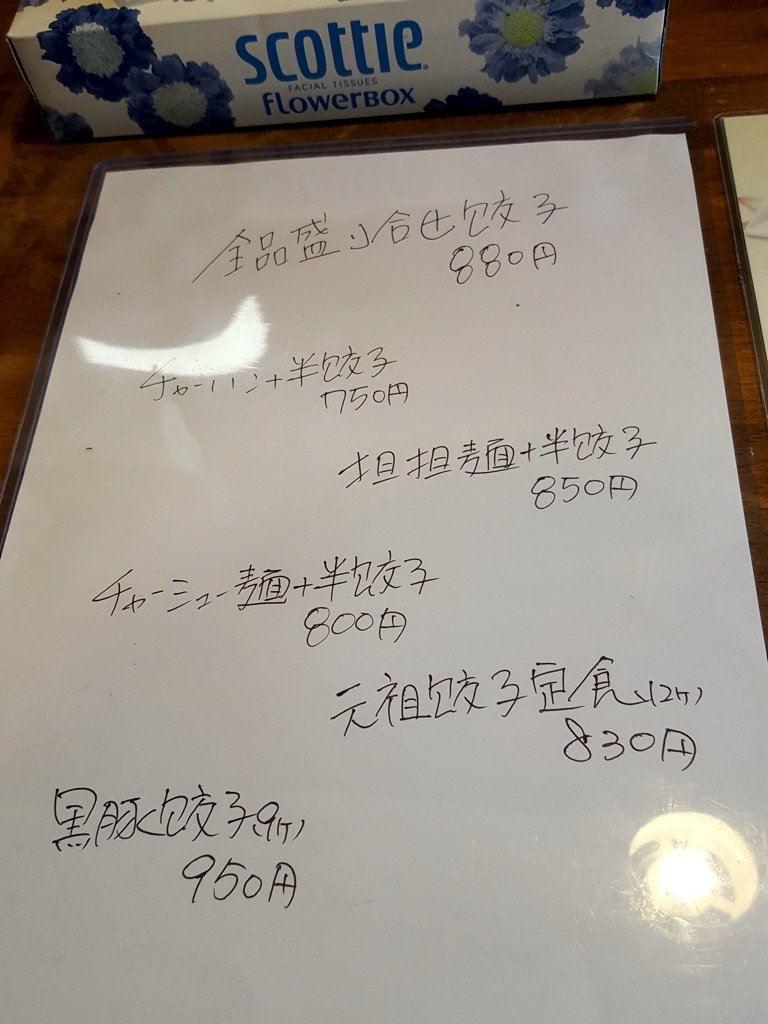 SCOTTIE
FACIAL TISSUES
FLOWERBOX
全品盛り合せ餃子
880円
チャーハン+半餃子
750円
担担麺+半餃子
850円
チャーシュー麺+半餃子
800円
元祖餃子定食(12ヶ)
830円
黒豚餃子(9ヶ)
950円